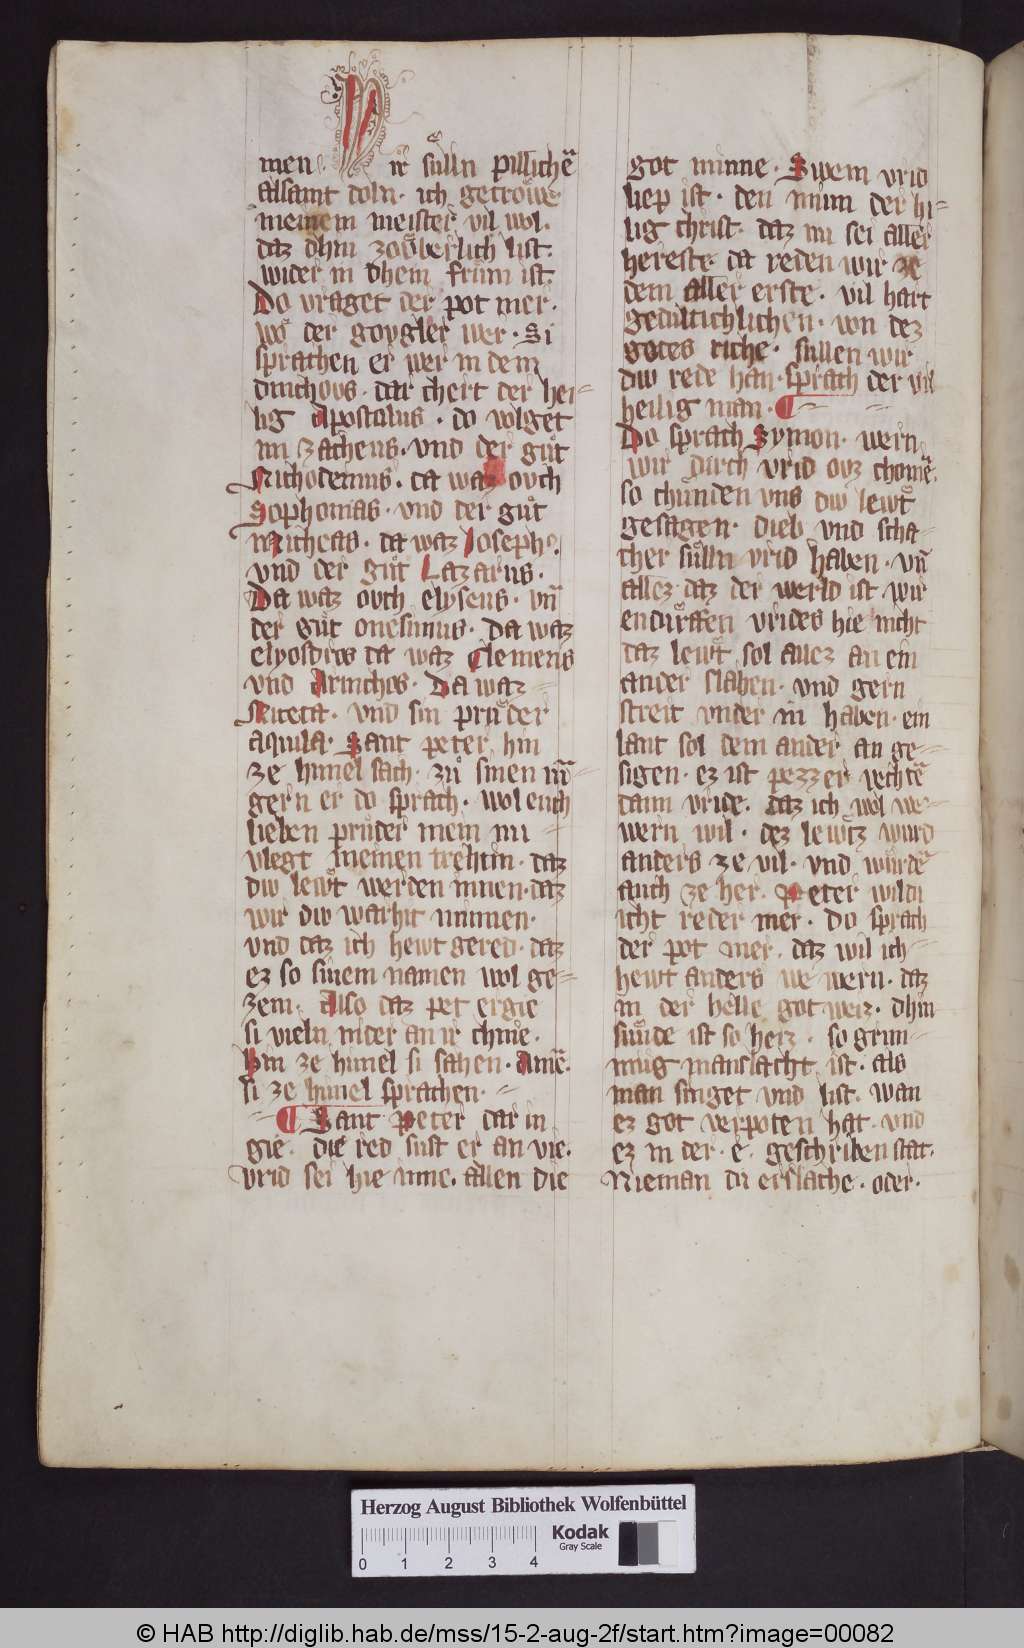 men · Wir sůlln pillichē
alsamt doln · ich getrowe
meinem meister vil wol ·
daz dhin zoͮberlich list ·
wider in dhein frům ist ·
Do vraget der pot mer ·
wo der goygler wer · Si
sprachen er wer in dem
dinchovs · dar chert der hei⸗
lig Apostolus · do volget
im zacheus · vnd der gůt
Nichodemus · da waz ovch
Sophonias · vnd der gůt
Micheas · da waz Joseph
vnd der gůt Lazarus ·
Da waz ovch elyseus · vn̄
der gůt onesimus · Da waz
elyosdros da waz Clemens
vnd Arinchos · Da waz
Niceta · vnd sin průder
aquila · Sant peter hin
ze himel sach · zů sinen
gern er do sprach · wol euch
lieben průder mein nu
vlegt meinen trehtin · daz
div lewt werden innen · daz
wir div warhit minnen ·
vnd daz ich hewt gered · daz
ez so sinem namen wol ge⸗
zem · Also daz pet ergie
si vieln nider an ir chnie ·
Hin ze himel si sahen · Amē ·
si ze himel sprachen ·
¶ Sant Peter dar in
gie · die red sust er an vie ·
vrid sei hie inne · allen die
got minne · Swem vrid
liep ist · den minn der hi⸗
lig christ · daz nu sei aller
hereste da reden wir ze
dem aller erste · vil hart
gedultichlichen · von dez
gotes riche · sullen wir
div rede han · sprach der vil
heilig man · ¶
Do sprach Symon · wern
wir durch vrid ovz chomē ·
so chunden vns div lewt
gesagen · dieb vnd scha⸗
cher sůlln vrid haben · vn̄
allez daz der werld ist wir
endurffen vrides hie nicht
daz lewt sol allez an ein
ander slahen · vnd gern
streit vnder in haben · ein
lant sol dem ander an ge⸗
sigen · ez ist pezzer rechtē
dann vride · daz ich wol we⸗
wern wil · dez lewtz wurd
anders ze vil · vnd wurdē
auch ze her · Peter wildu
icht reder mer · Do sprach
der pot mer · daz wil ich
hewt anders we wern · daz
in der helle got weiz · dhin
sunde ist so heiz · so grim⸗
mug manslacht ist · als
man singet vnd list · wan
ez got verpoten hat · vnd
ez in der · e · geschriben stat ·
Nieman du erslache · oder ·
Herzog August Bibliothek Wolfenbüttel
Kodak
Gray Scale
0 1 2 3 4
© HAB http://diglib.hab.de/mss/15-2-aug-2f/start.htm?image=00082